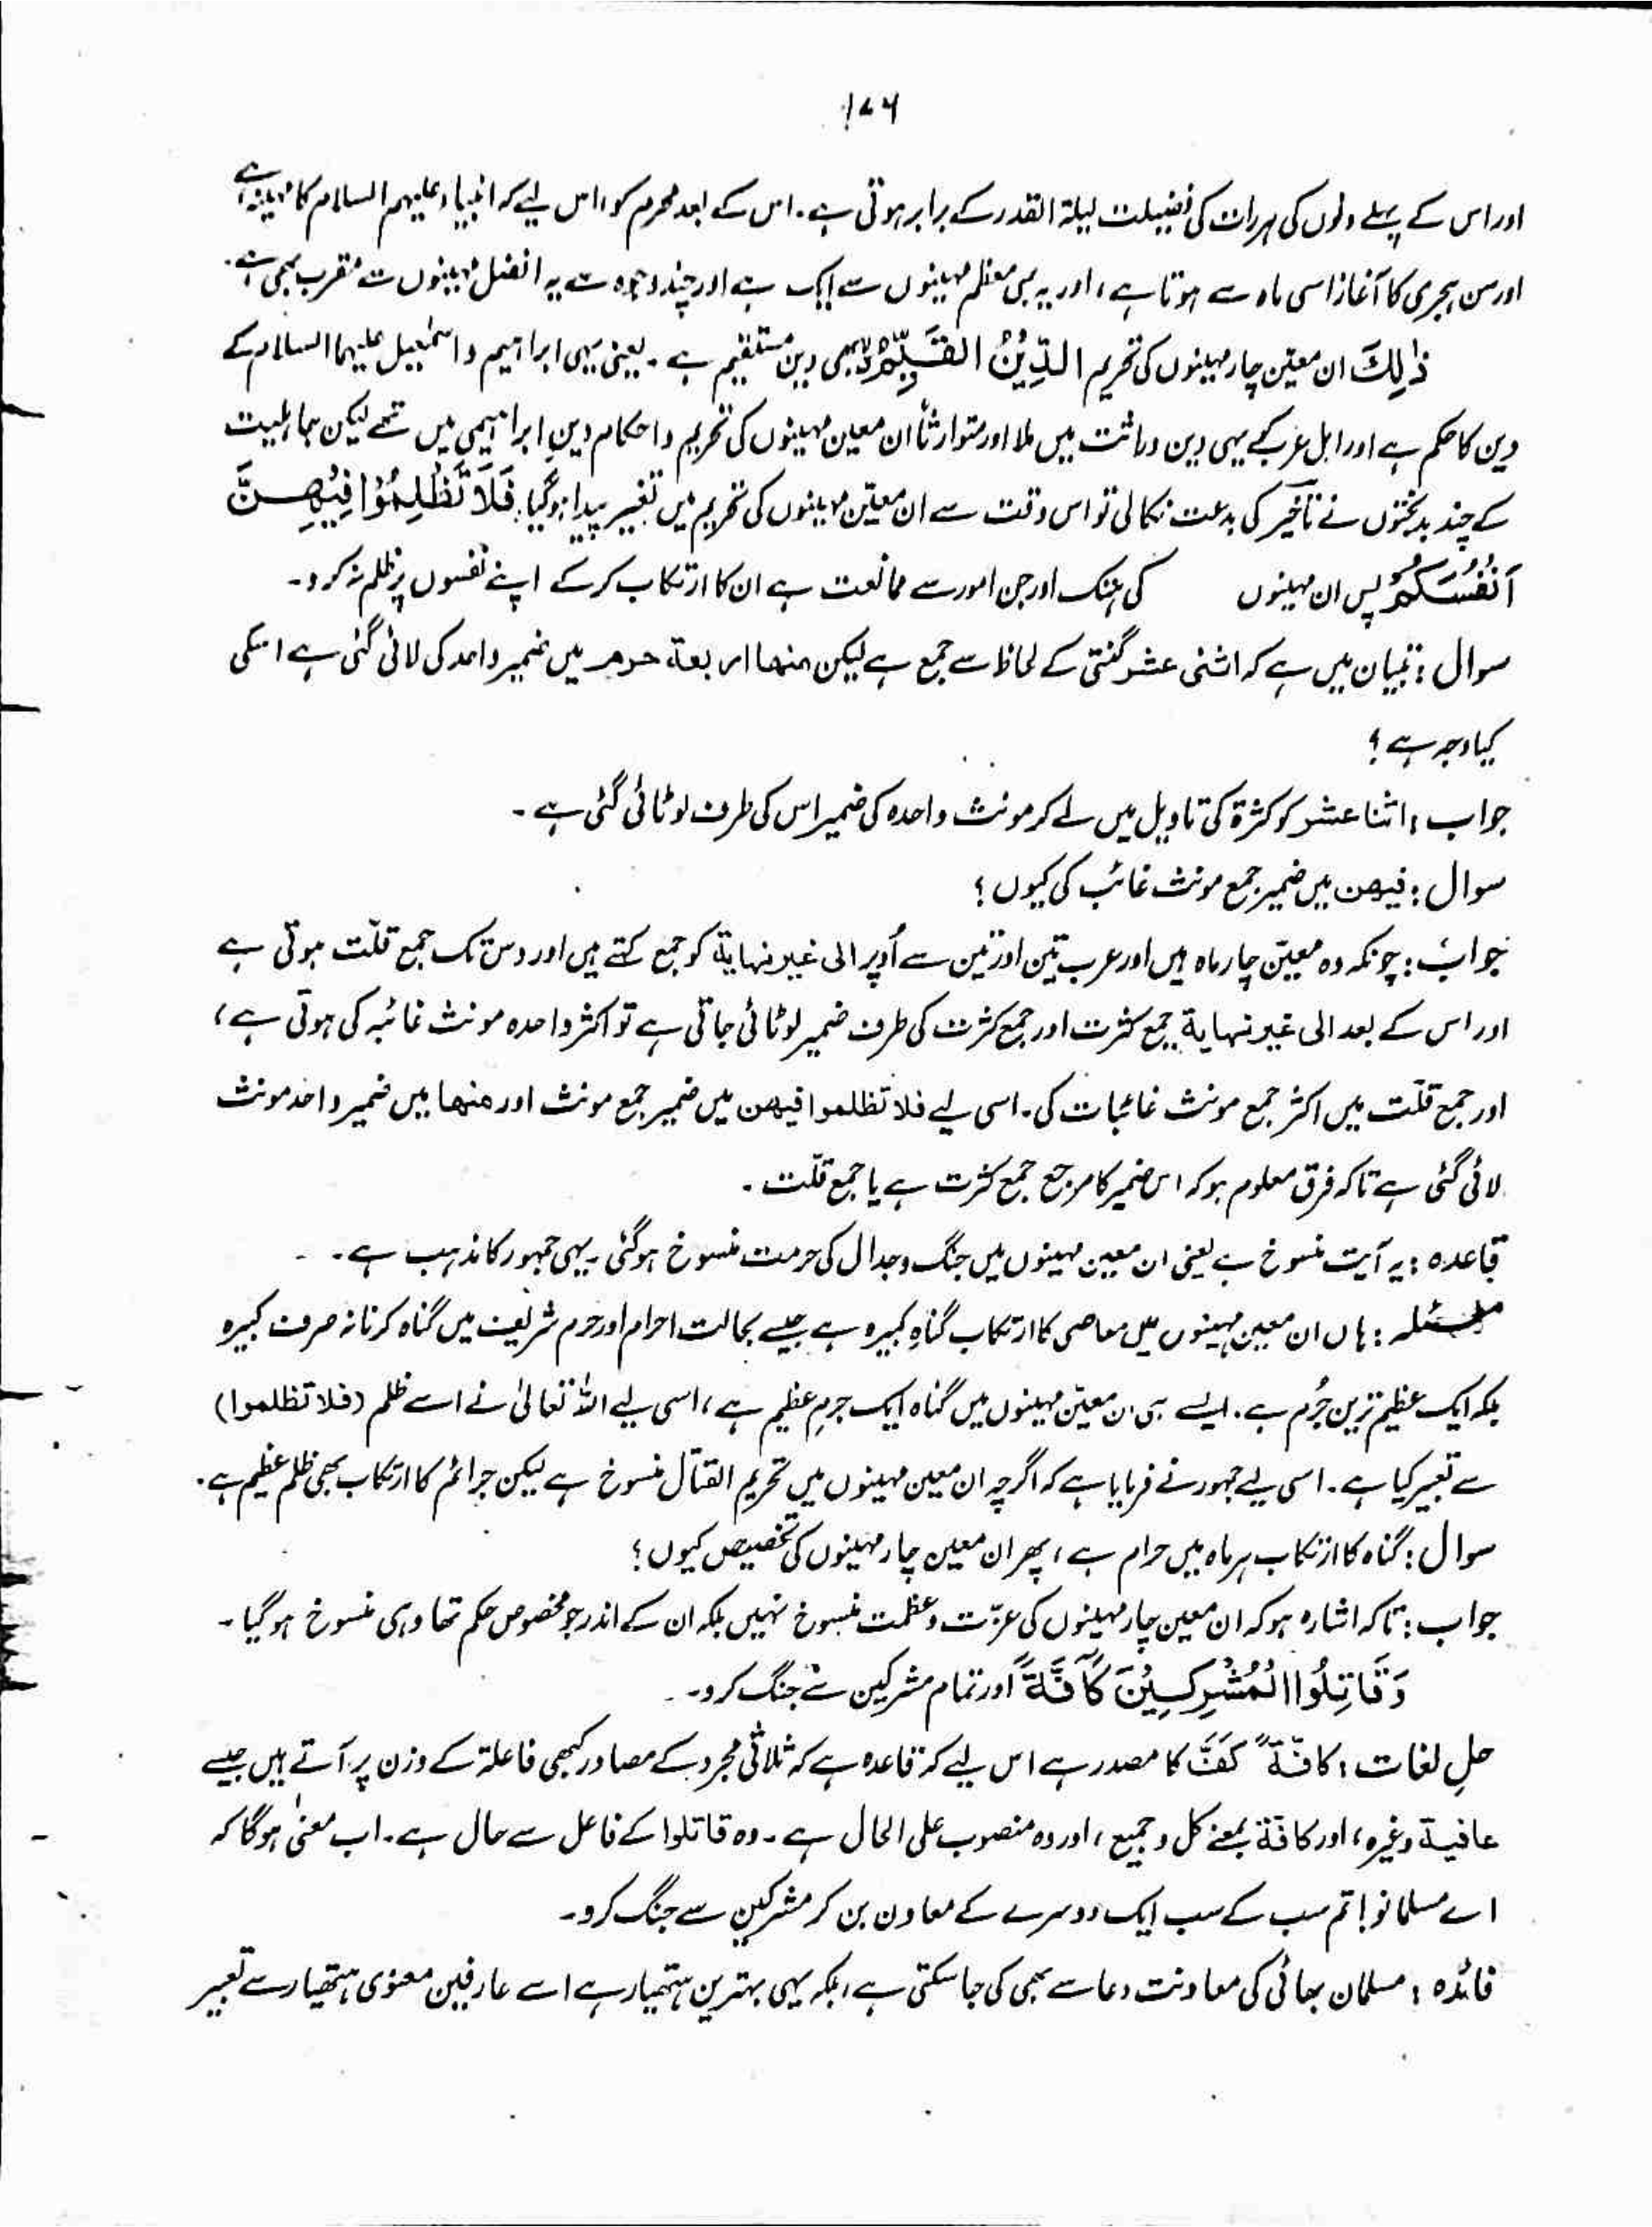 ۱۷۶
اور اس کے پہلے دنوں کی ہر رات کی فضیلت لیلۃ القدر کے برابر ہوتی ہے۔ اس کے بعد محرم کو، اس لیے کہ انبیاء علیہم السلام کا مہینہ ہے
اور سن ہجری کا آغاز اسی ماہ سے ہوتا ہے، اور یہ بھی معظم مہینوں سے ایک ہے اور چند وجوہ سے یہ افضل مہینوں سے مقرب بھی ہے۔
ذٰلِكَ ان معیّن چار مہینوں کی تحریم الدِّيْنُ الْقَيِّمُ یہی دین مستقیم ہے۔ یعنی یہی ابراہیم و اسمٰعیل علیہما السلام کے
دین کا حکم ہے اور اہل عرب کے یہی دین وراثت میں ملا اور متوارثاً ان معین مہینوں کی تحریم و احکام دینِ ابراہیمی میں تھے لیکن جاہلیت
کے چند بدبختوں نے تأخیر کی بدعت نکالی تو اس وقت سے ان معیّن مہینوں کی تحریم میں تغیر پیدا ہوگیا۔ فَلَا تَظْلِمُوْا فِيْهِنَّ
اَنْفُسَكُمْ پس ان مہینوں کی ہتک اور جن امور سے ممانعت ہے ان کا ارتکاب کرکے اپنے نفسوں پر ظلم نہ کرو۔
سوال: تبیان میں ہے کہ اثنی عشر گنتی کے لحاظ سے جمع ہے لیکن منها اربعة حرم میں ضمیر واحد کی لائی گئی ہے اسکی
کیا وجہ ہے؟
جواب: اثنا عشر کو کثرۃ کی تاویل میں لے کر مونث واحدہ کی ضمیر اس کی طرف لوٹائی گئی ہے۔
سوال: فیهن میں ضمیر جمع مونث غائب کی کیوں؟
جواب: چونکہ وہ معیّن چار ماہ ہیں اور عرب تین اور تین سے اُوپر الی غیر نهایة کو جمع کہتے ہیں اور دس تک جمع قلّت ہوتی ہے
اور اس کے بعد الی غیر نهایة جمع کثرت اور جمع کثرت کی طرف ضمیر لوٹائی جاتی ہے تو اکثر واحدہ مونث غائبہ کی ہوتی ہے،
اور جمع قلّت میں اکثر جمع مونث غائبات کی۔ اسی لیے فلا تظلموا فیهن میں ضمیر جمع مونث اور منها میں ضمیر واحد مونث
لائی گئی ہے تاکہ فرق معلوم ہو کہ اس ضمیر کا مرجع جمع کثرت ہے یا جمع قلّت۔
قاعدہ: یہ آیت منسوخ ہے یعنی ان معین مہینوں میں جنگ وجدال کی حرمت منسوخ ہوگئی۔ یہی جمہور کا مذہب ہے۔
مسئلہ: ہاں ان معین مہینوں میں معاصی کا ارتکاب گناہِ کبیرہ ہے جیسے بحالت احرام اور حرم شریف میں گناہ کرنا نہ صرف کبیرہ
بلکہ ایک عظیم ترین جُرم ہے۔ ایسے ہی ان معیّن مہینوں میں گناہ ایک جرمِ عظیم ہے، اسی لیے اللہ تعالیٰ نے اسے ظلم (فلا تظلموا)
سے تعبیر کیا ہے۔ اسی لیے جمہور نے فرمایا ہے کہ اگرچہ ان معین مہینوں میں تحریم القتال منسوخ ہے لیکن جرائم کا ارتکاب بھی ظلم عظیم ہے۔
سوال: گناہ کا ارتکاب ہر ماہ میں حرام ہے، پھر ان معین چار مہینوں کی تخصیص کیوں؟
جواب: تاکہ اشارہ ہو کہ ان معین چار مہینوں کی عزّت وعظمت منسوخ نہیں بلکہ ان کے اندر جو مخصوص حکم تھا وہی منسوخ ہوگیا۔
وَقَاتِلُوا الْمُشْرِكِيْنَ كَآفَّةً اور تمام مشرکین سے جنگ کرو۔
حلِ لغات: کافّةً کَفَّ کا مصدر ہے اس لیے کہ قاعدہ ہے کہ ثلاثی مجرد کے مصادر کبھی فاعلۃ کے وزن پر آتے ہیں جیسے
عافیة وغیرہ، اور کافة بمعنے کل و جمیع، اور وہ منصوب علی الحال ہے۔ وہ قاتلوا کے فاعل سے حال ہے۔ اب معنیٰ ہوگا کہ
اے مسلمانو! تم سب کے سب ایک دوسرے کے معاون بن کر مشرکین سے جنگ کرو۔
فائدہ: مسلمان بھائی کی معاونت دعا سے بھی کی جاسکتی ہے، بلکہ یہی بہترین ہتھیار ہے اسے عارفین معنوی ہتھیار سے تعبیر